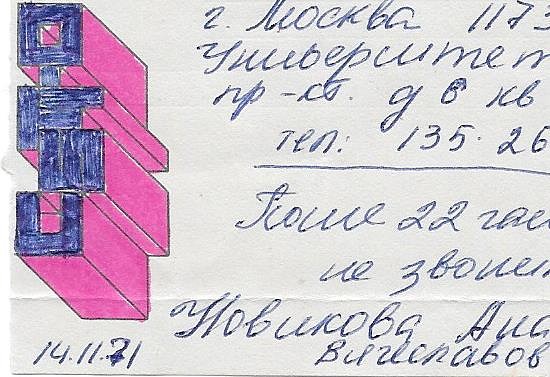 г. Москва 1173
Университет
пр-кт. д 6 кв
тел: 135-26
После 22 час
не звонит
Новикова Ана
14.11.71 Вячеславов